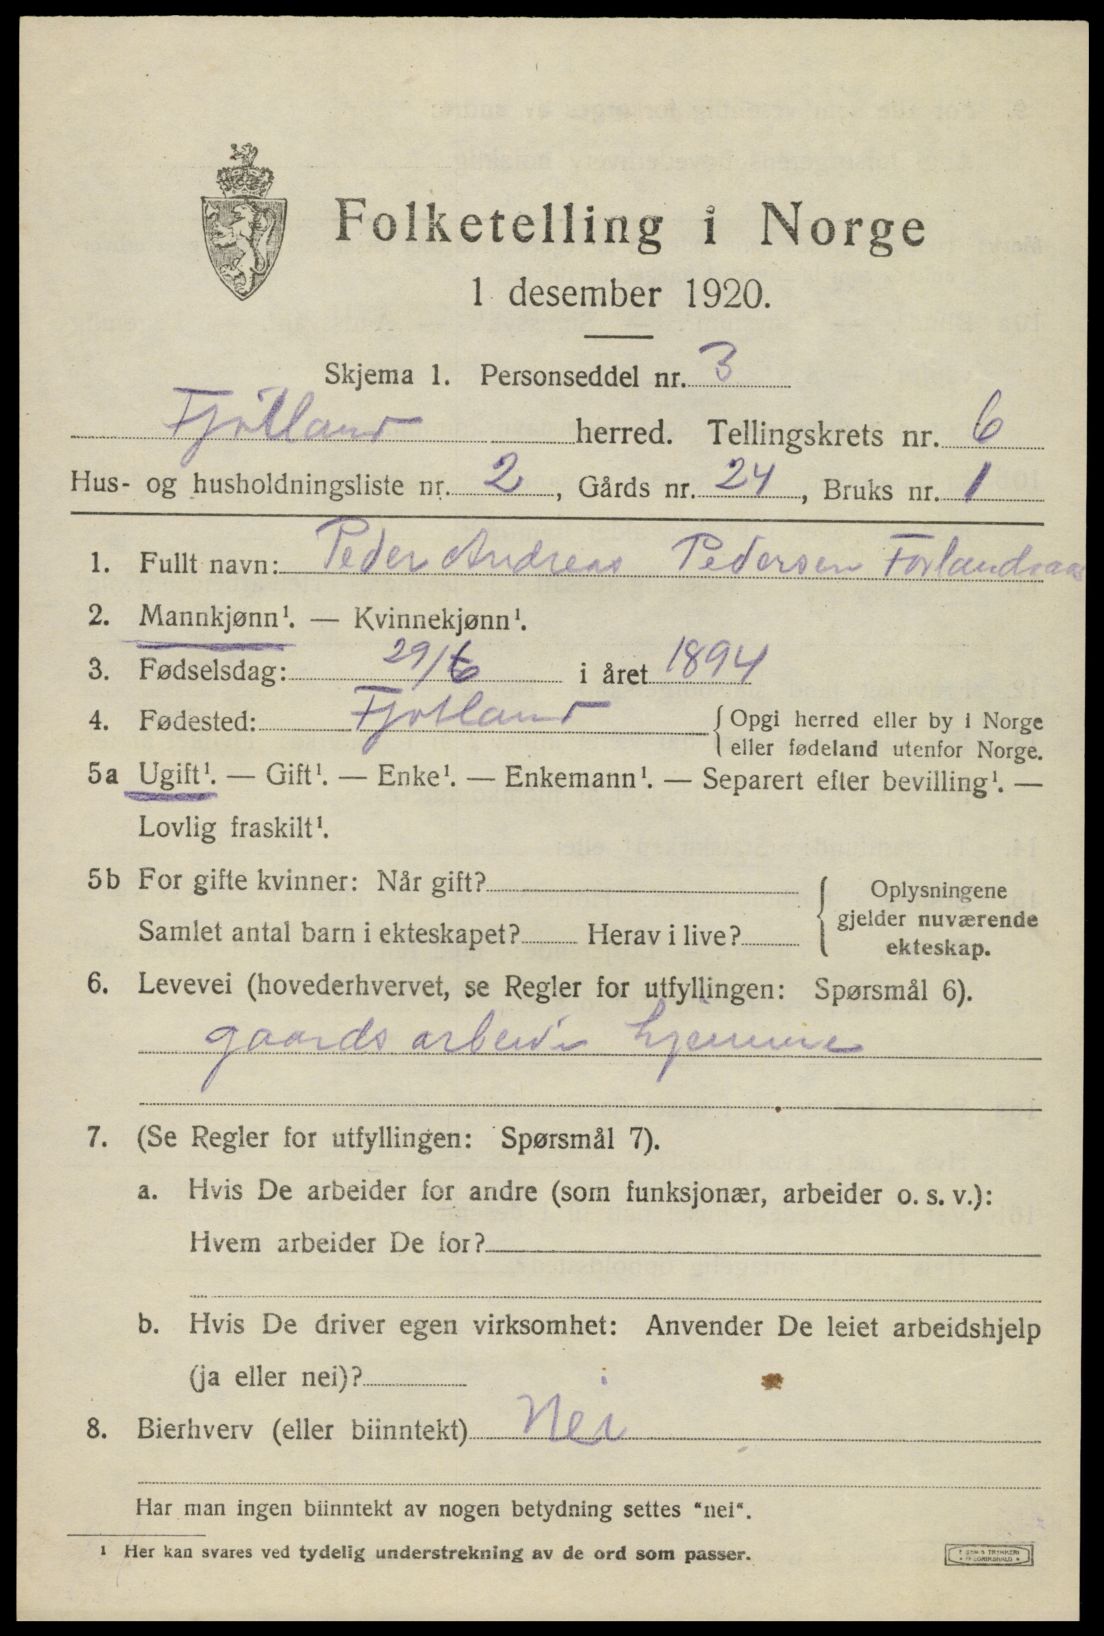 Folketelling i Norge
1 desember 1920.
Skjema 1. Personseddel nr. 3
Fjotland herred. Tellingskrets nr. 6
Hus- og husholdningsliste nr. 2, Gårds nr. 24, Bruks nr. 1
1. Fullt navn: Peder Andreas Pedersen
2. Mannkjønn¹. — Kvinnekjønn¹.
3. Fødselsdag: 29/6 i året 1894
4. Fødested: Fjotland {Opgi herred eller by i Norge
eller fødeland utenfor Norge.
5a Ugift¹. — Gift¹. — Enke¹. — Enkemann¹. — Separert efter bevilling¹. —
Lovlig fraskilt¹.
5b For gifte kvinner: Når gift?
Samlet antal barn i ekteskapet? Herav i live?
{ Oplysningene
gjelder nuværende
ekteskap.
6. Levevei (hovederhvervet, se Regler for utfyllingen: Spørsmål 6).
gaards arbeide hjemme
7. (Se Regler for utfyllingen: Spørsmål 7).
a. Hvis De arbeider for andre (som funksjonær, arbeider o. s. v.):
Hvem arbeider De for?
b. Hvis De driver egen virksomhet: Anvender De leiet arbeidshjelp
(ja eller nei)?
8. Bierhverv (eller biinntekt) Nei
Har man ingen biinntekt av nogen betydning settes "nei".
¹ Her kan svares ved tydelig understrekning av de ord som passer.